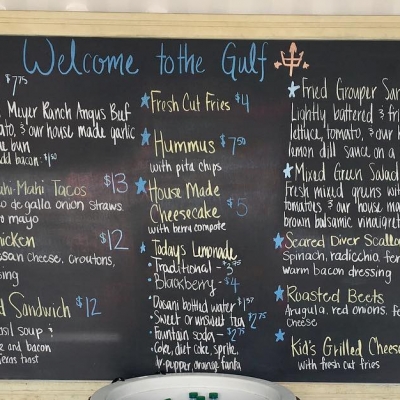 Welcome to the Gulf
$7 75
Meyer Ranch Angus Beef
& our house made garlic
bun
add bacon $1 50
Mahi-Mahi Tacos $13
de gallo onion straws
mayo
$12
cheese, croutons,
Sandwich $12
soup &
and bacon
Texas toast
Fresh Cut Fries $4
Hummus $7 50
with pita chips
House Made
Cheesecake $5
with berry compote
Todays Lemonade
• Traditional - $3 75
• Blackberry - $4
• Dasani bottled water $1 57
• Sweet or unsweet tea $2 75
• Fountain soda - $2 75
• Coke, diet coke, sprite,
orange fanta
Fried Grouper
Lightly battered & fri
lettuce, tomato, & our h
lemon dill sauce on a
Mixed Green Salad
Fresh mixed greens wit
tomatoes & our house ma
brown balsamic vinaigret
Seared Diver Scallo
Spinach, radicchio, fe
warm bacon dressing
Roasted Beets
Arugula, red onions, fe
cheese
Kid's Grilled Cheese
with fresh cut fries